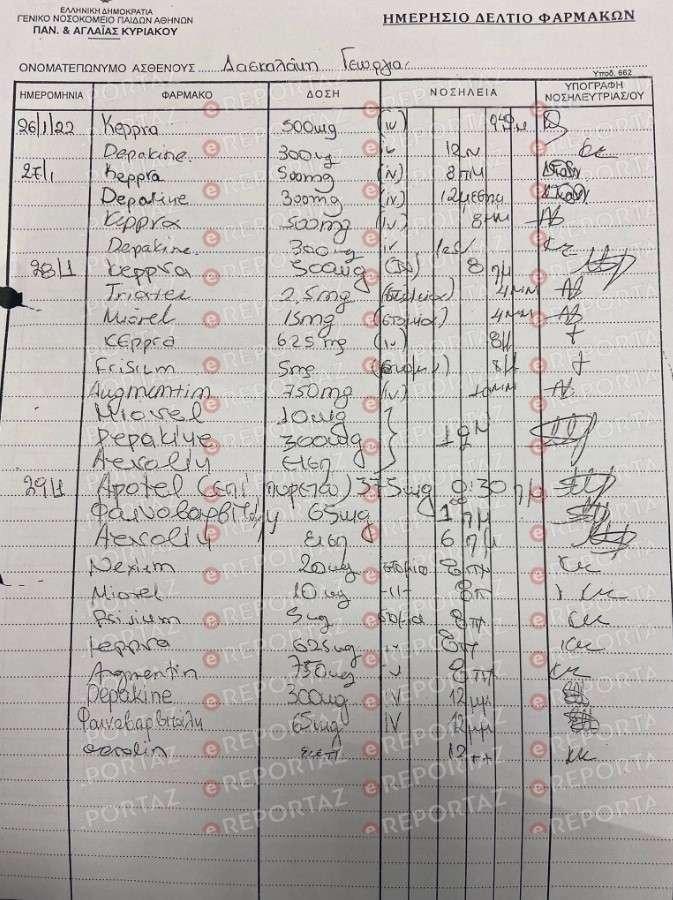 ΕΛΛΗΝΙΚΗ ΔΗΜΟΚΡΑΤΙΑ
ΓΕΝΙΚΟ ΝΟΣΟΚΟΜΕΙΟ ΠΑΙΔΩΝ ΑΘΗΝΩΝ
ΠΑΝ. & ΑΓΛΑΪΑΣ ΚΥΡΙΑΚΟΥ
ΗΜΕΡΗΣΙΟ ΔΕΛΤΙΟ ΦΑΡΜΑΚΩΝ
ΟΝΟΜΑΤΕΠΩΝΥΜΟ ΑΣΘΕΝΟΥΣ Δασκαλάκη Γεωργία
Υποδ. 662
ΗΜΕΡΟΜΗΝΙΑ ΦΑΡΜΑΚΟ ΔΟΣΗ ΝΟΣΗΛΕΙΑ ΥΠΟΓΡΑΦΗ ΝΟΣΗΛΕΥΤΡΙΑΣ/ΟΥ
26/1/22 Keppra 500mg (iv)
Depakine 300mg iv 12
27/1 Keppra 500mg (iv) 8 πμ
Depakine 300mg (iv) 12
Keppra 500mg (iv) 8 μμ
Depakine 300mg iv
28/1 Keppra 500mg (iv) 8 πμ
Triatec 2,5mg 4 μμ
Miorel 15mg 4 μμ
Keppra 625mg (iv) 8μ
Frisium 5mg 8μ
Augmentin 750mg (iv)
Miorel 10mg
Depakine 300mg
Aerolin εισπ
29/1 Apotel (επί πυρετού) 375mg πμ
Φαινοβαρβιτάλη 65mg 1 πμ
Aerolin εισπ 6 πμ
Nexium 20mg στόμα 8 πμ
Miorel 10mg -11- 8 πμ
Frisium 5mg στόμα 8πμ
Keppra 625mg iv 8πμ
Augmentin 750mg iv 8πμ
Depakine 300mg IV 12 μμ
Φαινοβαρβιτάλη 65mg IV 12 μμ
aerolin εισπ 12
REPORTAZ